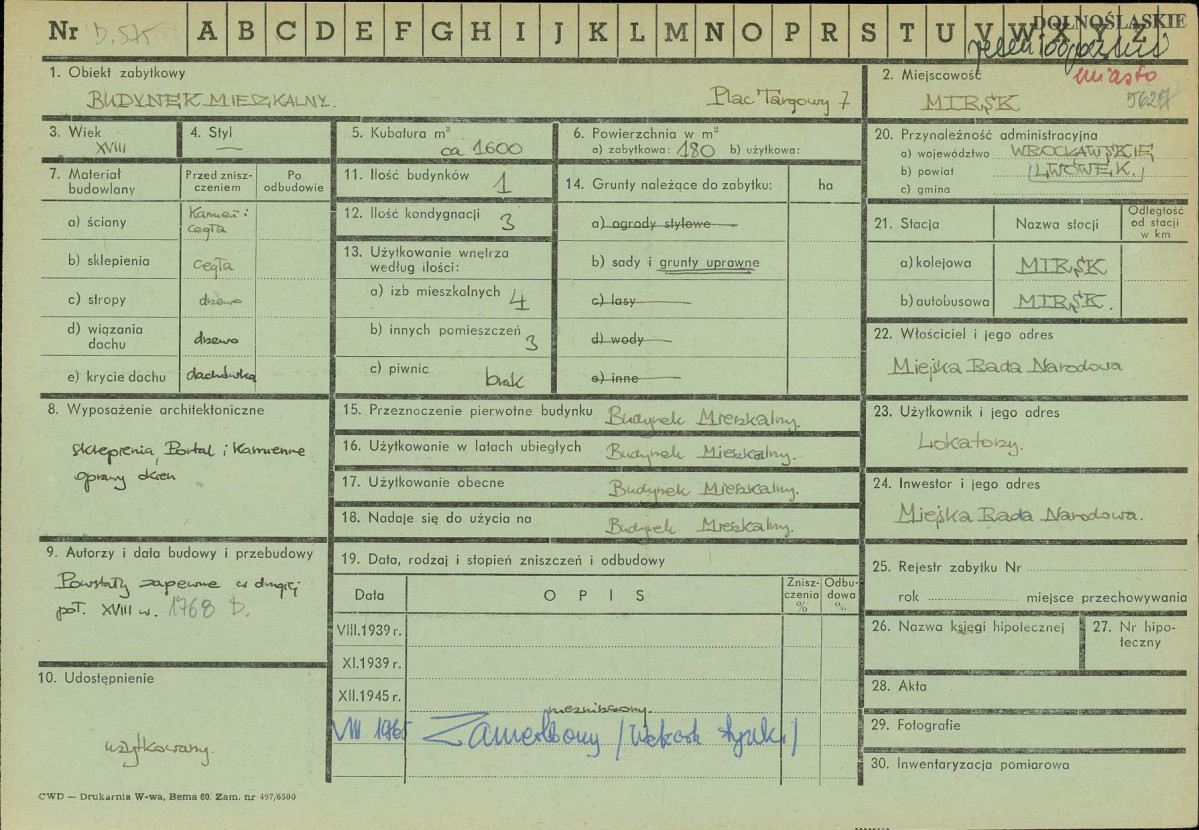 Nr D.575 A B C D E F G H I J K L M N O P R S T U V W X Y Z
DOLNOŚLĄSKIE
miasto
5627
1. Obiekt zabytkowy
BUDYNEK MIESZKALNY. Plac Targowy 7
2. Miejscowość
MIRSK
3. Wiek
XVIII
4. Styl
—
5. Kubatura m³
ca 1600
6. Powierzchnia w m²
a) zabytkowa: 180 b) użytkowa:
7. Materiał budowlany
Przed znisz-
czeniem
Po
odbudowie
a) ściany
Kamień i
cegła
b) sklepienia cegła
c) stropy drzewo
d) wiązania
dachu drzewo
e) krycie dachu dachówka
11. Ilość budynków 1
12. Ilość kondygnacji 3
13. Użytkowanie wnętrza
według ilości:
a) izb mieszkalnych 4
b) innych pomieszczeń 3
c) piwnic brak
14. Grunty należące do zabytku: ha
a) ogrody stylowe
b) sady i grunty uprawne
c) lasy
d) wody
e) inne
20. Przynależność administracyjna
a) województwo WROCŁAWSKIE
b) powiat LWÓWEK.
c) gmina
21. Stacja Nazwa stacji
Odległość
od stacji
w km
a) kolejowa MIRSK
b) autobusowa MIRSK.
22. Właściciel i jego adres
Miejska Rada Narodowa
8. Wyposażenie architektoniczne
sklepienia, Portal i Kamienne
oprawy okien
15. Przeznaczenie pierwotne budynku Budynek Mieszkalny.
16. Użytkowanie w latach ubiegłych Budynek Mieszkalny.
17. Użytkowanie obecne Budynek Mieszkalny.
18. Nadaje się do użycia na Budynek Mieszkalny.
23. Użytkownik i jego adres
Lokatorzy.
24. Inwestor i jego adres
Miejska Rada Narodowa.
9. Autorzy i data budowy i przebudowy
Powstały zapewne w drugiej
poł. XVIII w. 1768 D.
19. Data, rodzaj i stopień zniszczeń i odbudowy
Data OPIS
Znisz-
czenia
%
Odbu-
dowa
%
VIII.1939 r.
XI.1939 r.
XII.1945 r. niezniszczony.
VIII 1965 Zamieszkały
10. Udostępnienie
użytkowany.
25. Rejestr zabytku Nr
rok miejsce przechowywania
26. Nazwa księgi hipotecznej
27. Nr hipo-
teczny
28. Akta
29. Fotografie
30. Inwentaryzacja pomiarowa
CWD — Drukarnia W-wa, Bema 60. Zam. nr 497/6500